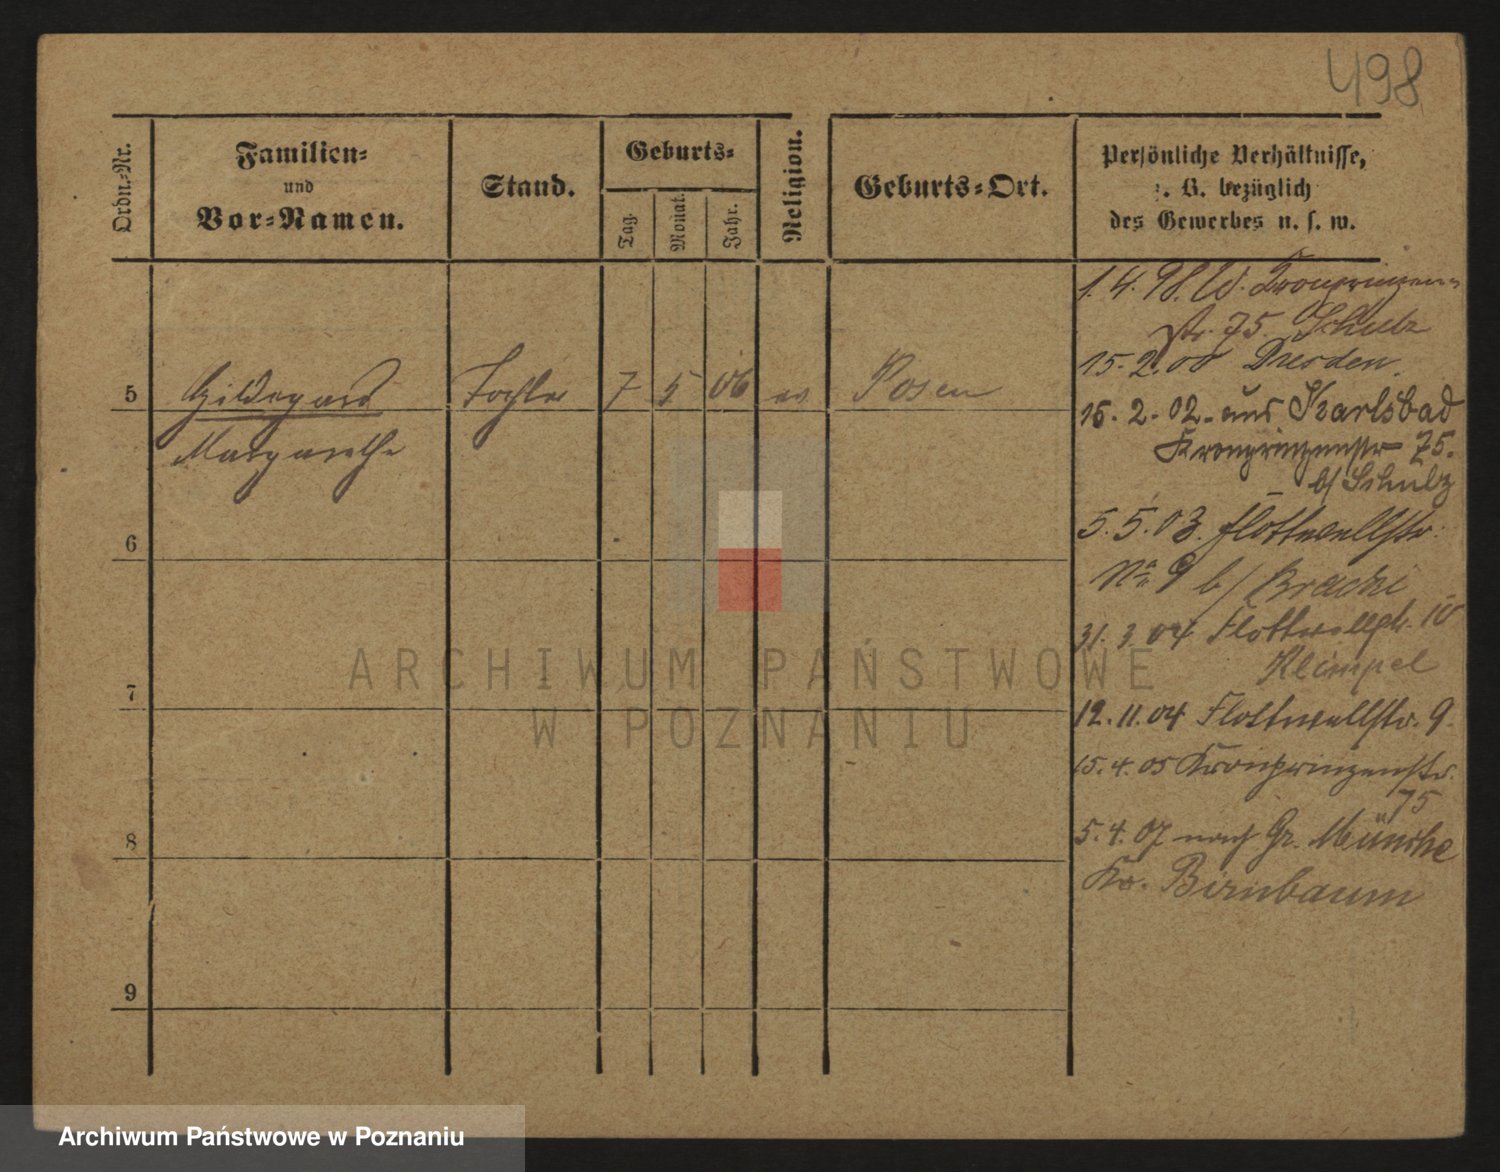 498
Ordn.-Nr.
Familien-
und
Vor-Namen.
Stand.
Geburts-
Tag.
Monat.
Jahr.
Religion.
Geburts-Ort.
Persönliche Verhältnisse,
z. B. bezüglich
des Gewerbes u. s. w.
5
Hildegard
Margarethe
Tochter
7
5
06
ev
Posen
6
7
8
9
1. 4. 98. W. Kronprinzen-
str. 75. Schulz
15. 2. 00 Dresden.
15. 2. 02. aus Karlsbad
Kronprinzenstr 75.
b/ Schulz
5. 5. 03. Flottwellstr.
No 9 b/
31. 3. 04 Flottwellstr. 10
Klimpel
12. 11. 04 Flottwellstr. 9.
15. 4. 05 Kronprinzenstr.
75
5. 4. 07 nach Gr. Münche
Kr. Birnbaum
ARCHIWUM PAŃSTWOWE
W POZNANIU
Archiwum Państwowe w Poznaniu